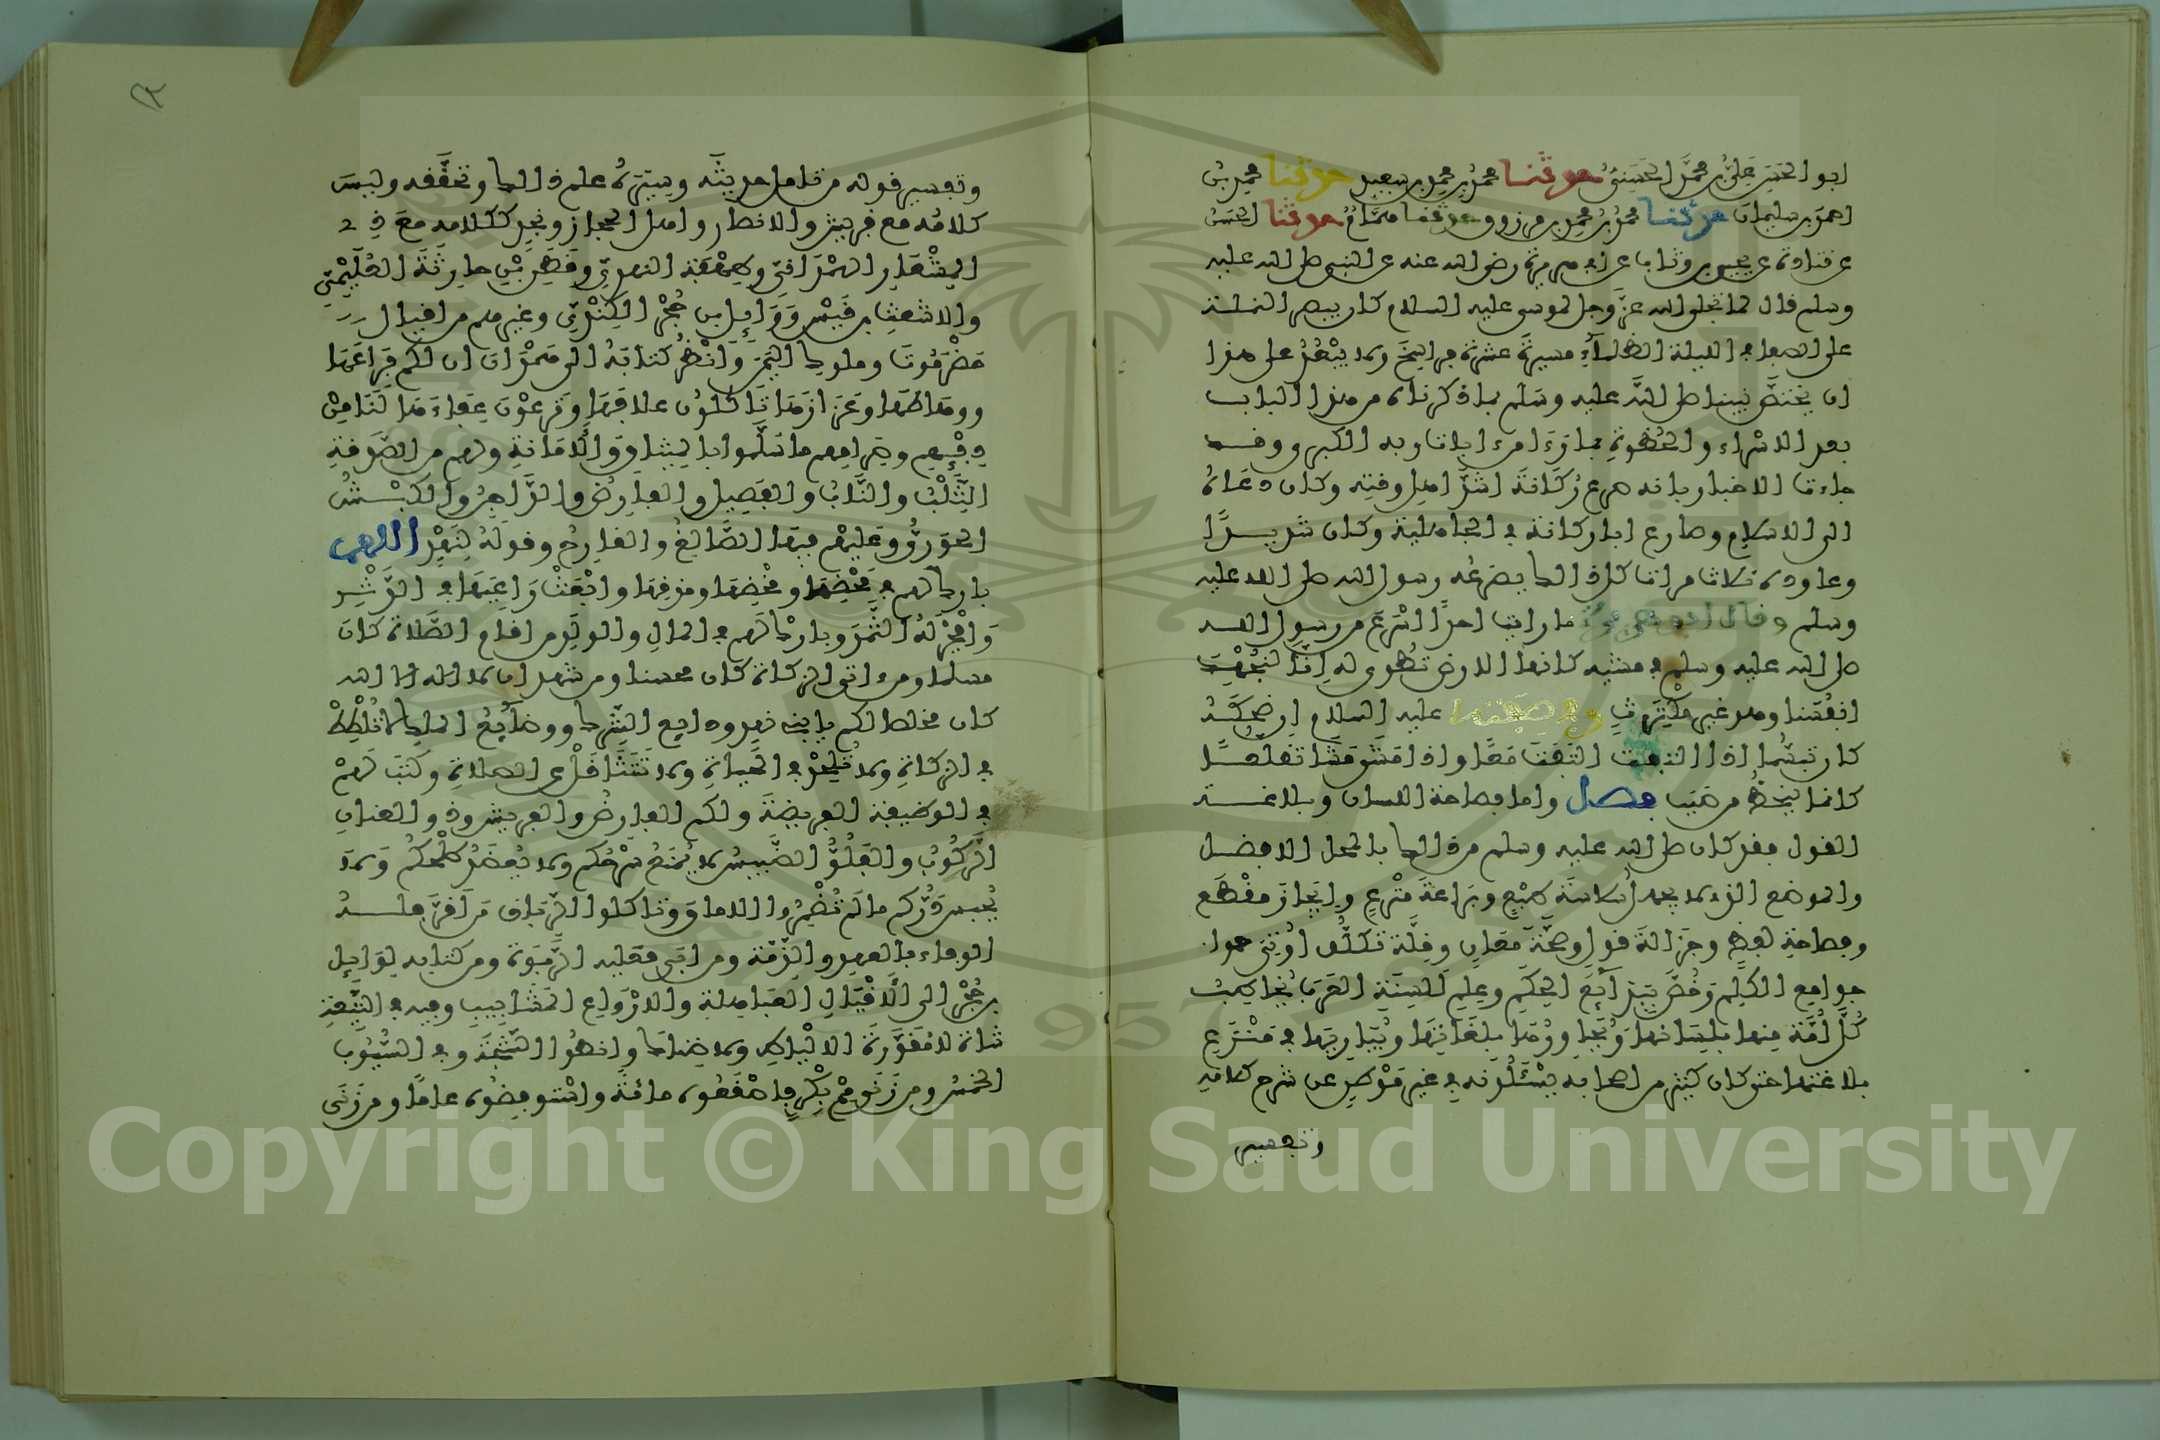 ابو الحَسَن عَليُّ بن محمَّد الحَسَنيُّ حدثنا محمد بن محمد بن سعيد حدثنا محمد بن
احمد بن سليمان حدثنا محمد بن محمد بن مرزوق حدثنا همَّامٌ حدثنا الحسَن
عن قتادة عن يحيى بن وثاب عن ابي هريرة رضي الله عنه عن النبي صلى الله عليه
وسلم قال لما تجلى الله عزَّ وجل لموسى عليه السلام كان يبصر النملة
على الصفا في الليلة الظلماءِ مسيرة عشرة فراسخ ولا يبْعُدُ على هذا
ان يختصَّ نبينا صلى اللَّه عليه وسَلم بما ذكرناه من هذا الباب
بعد الاسْراء والحُظوةِ بما رَءَا من ءايات ربه الكبرى وقد
جاءت الاخبار بانه صرع رُكَانَةَ اشدَّ اهلِ وقته وكان دعَاهُ
الى الاسْلامِ وصارع ابا ركانة في الجاهلية وكان شديدًا
وعاوده ثلاث مرات كل ذالك يصرعُه رسول الله صلى الله عليه
وسلم وقال ابو هريرة ما رايت احدًا اسْرعَ من رسول الله
صلى الله عليه وسلم في مشيه كانما الارض تُطوى له اِنَّا لنُجْهِدُ
انفُسَنا وهو غير مكْتَرِثٍ وفي صِفَته عليه السلام اِن ضِحكَهُ
كان تبسُّما اذا التفت التَفتَ مَعًا واذا مَشى مَشَا تقلعًا
كانما ينحَطُّ من صَبَب فصل واما فصاحة اللسان وبلاغة
القول فقد كان صلى الله عليه وسلم من ذالك بالمحل الافضل
والموضع الذي لا يجهل سَلاسَةَ طبْعٍ وبَراعةَ منْزعٍ وإيجازَ مقْطَع
وفصاحةَ لفظٍ وجَزالةَ قولٍ وصحَّةَ مَعَانٍ وقلَّةَ تكَلُّفٍ اُوتيَ
جوامع الكَلِم وَخُصَّ ببَدائعِ الحِكَم وعِلمِ اَلسِنَةِ العَرَب يُخاطبُ
كُلَّ اُمَّة منها بلسَانها وَيُحاوِرُها بلُغَاتِهَا ويُبَارِيها في مَنْزَعِ
بلاغتها حتى كان كثير من اصحابه يسْئَلُونه في غير مَوْطن عن شرح كلامه
وتفسير
وتفسير قوله من تامل حديثَه وسِيَرَهُ علم ذالك وتحقَّقه وليسَ
كلامُه مع قريش والانصار واهل الحجاز ونجد ككلامه معَ ذي
المِشْعَارِ الهمْدَانِيّ وطِهْفَةَ النهديّ وقَطَنِ بْنِ حارثَةَ العُلَيْمِيّ
والاشعث بن قَيْس وَوَائِل بن حُجْرٍ الكِنْدِيّ وغيرهم من اقيال
حَضْرَمُوتَ وملوك اليَمَن وَانْظُر كتابَهُ الى همْدَان ان لكم فِرَاعَهَا
ووهَاطَها وعَزَازَهَا تَاكُلون علافَها وترعَوْنَ عَفاءَهَا لنَا من
دِفْئِهِم وصِرامِهم ما سَلَّموا بالمِيثاقِ والامَانةِ ولهم من الصَّدَقةِ
الثِّلْبُ والنَّابُ والفَصِيلُ والفارِضُ والدَّاجِنُ والكَبْشُ
الحَوَرِيُّ وعَليْهم فيهَا الصَّالِغُ والقارِحُ وقولَهُ لنَهْدٍ اللهم
بارك لهم في محْضِهَا ومخْضِهَا ومذقِها وابْعَثْ رَاعِيَها في الدَّثْرِ
وَافْجُرْ لهُ الثَّمَدَ وبارك لهم في المالِ والولدِ من اقام الصَّلاة كان
مسلما ومن ءاتى الزكاة كان محسنا ومن شهد ان لا اله الا الله
كان مخلصا لكم يا بني نهدٍ ودائع الشِّرك ووضَائِعُ الملك لا تُلْطِطْ
في الزكاةِ ولا تُلحِدْ في الحياةِ ولا تتَثَاقَلْ عن الصلاةِ وكتَبَ لهمْ
في الوظيفة الفريضَةَ ولكم الفارِضُ والفريش وذو العنانِ
الرَّكُوبُ والفَلُوُّ الضَّبيسُ لا يُمْنَعُ سَرْحُكم ولا يُعضَدُ طلحُكُم وَلا
يُحبس دَرُّكم ما لم تُضْمِرُوا الاماقَ وتاكلوا الرِّبَاقَ مَن اَقرَّ فلهُ
الوفاء بالعهد والذِّمَّة ومن اَبَى فعَليه الرَّبْوَة ومن كتابه لوَايِل
بن حُجْر الى الاَقْيَالِ العَباهِلة والارْوَاعِ المشَابيبِ وفيه في التِّيعَةِ
شاة لا مُقَوَّرَةُ الالْيَاطِ ولا ضِنَاك وانطُوا الثَّبَجَةَ وفي السُّيُوبِ
الخمْسُ ومن زَنَى مِمْ بِكْر فاصْقَعُوه مائةً واسْتوفِضُوه عامًا ومن زَنَى